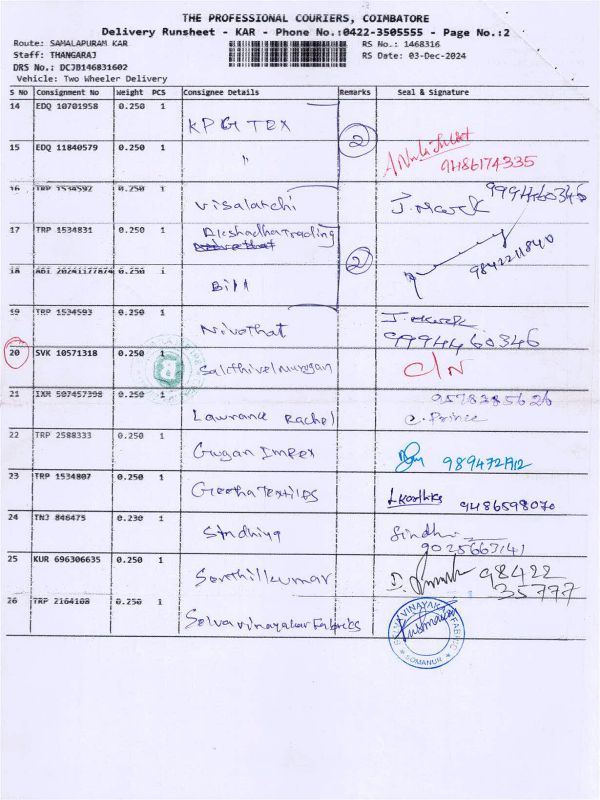 THE PROFESSIONAL COURIERS, COIMBATORE
Delivery Runsheet - KAR - Phone No.:0422-3505555 - Page No.:2
Route: SAMALAPURAM KAR
RS No.: 1468316
Staff: THANGARAJ
RS Date: 03-Dec-2024
DRS No.: DCJB146831602
Vehicle: Two Wheeler Delivery
S No Consignment No Weight PCS Consignee Details Remarks Seal & Signature
14 EDQ 10701958 0.250 1 KPG TEX
2
15 EDQ 11840579 0.250 1 "
9486174335
16 TRP 1534592 0.250 1 Visalatchi
9994460346
17 TRP 1534831 0.250 1 Akshadha Trading
2
9842211840
18 ABI 20241127874 0.250 1 Bill
19 TRP 1534593 0.250 1 Nivothat
9994460346
20 SVK 10571318 0.250 1 Sakthivel murugan C/N
21 IXM 507457398 0.250 1 Lawrance Rachel
9578285626
C. Prince
22 TRP 2588333 0.250 1 Gugan Impex
23 TRP 1534807 0.250 1 Geetha Textiles
9486598070
24 TNJ 846475 0.230 1 Sindhiya
Sindhi
9025663141
25 KUR 696306635 0.250 1 Senthilkumar
98422
35777
26 TRP 2164108 0.250 1 Selvavinayakar Fabricks
SOMANUR